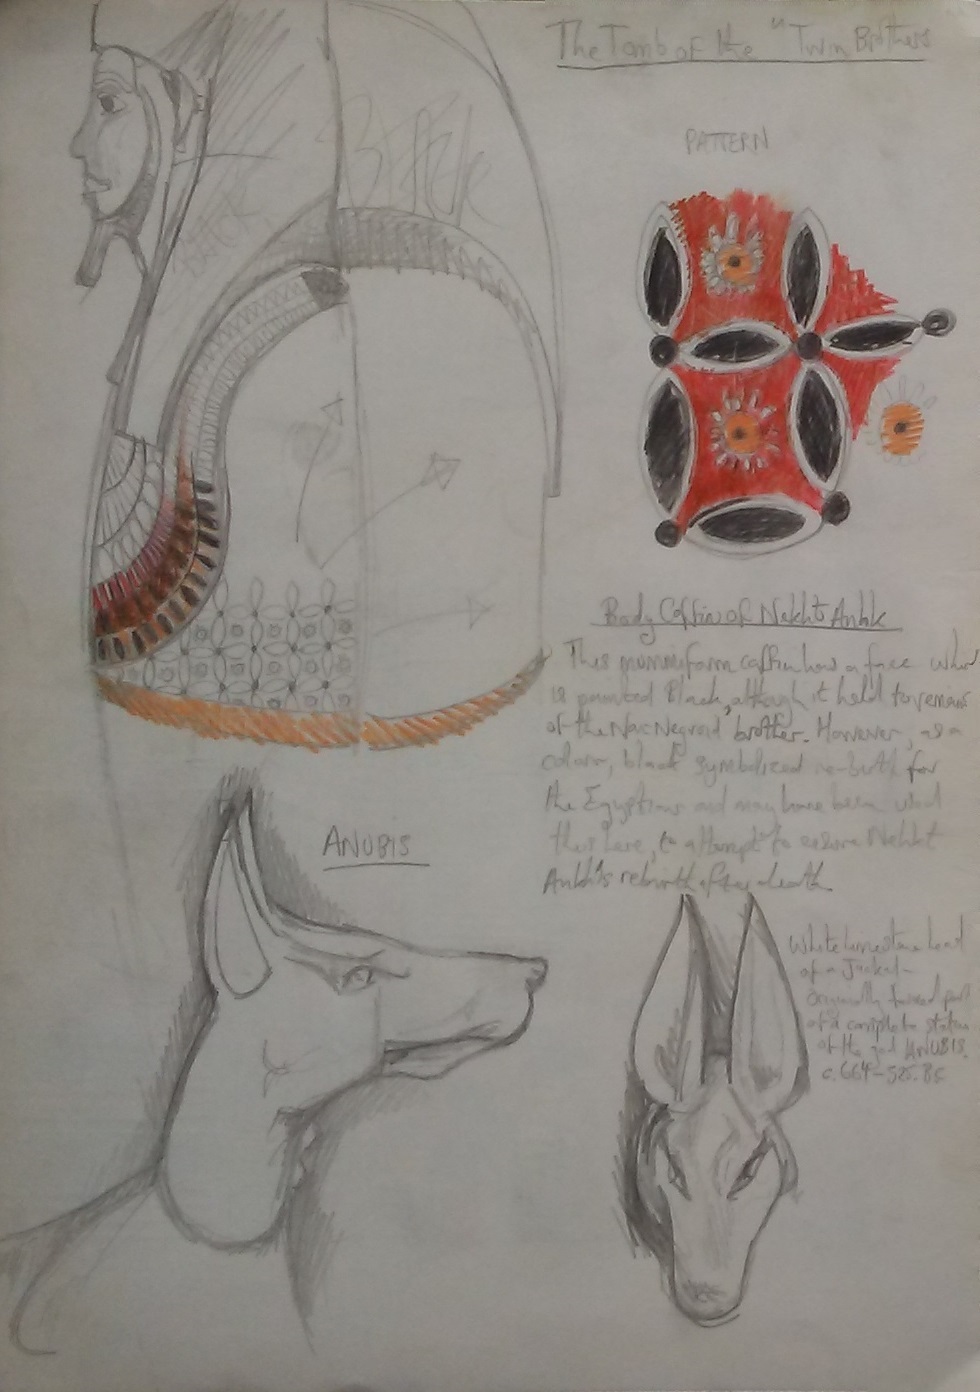 The Tomb of the "Twin Brothers
PATTERN
BLACK
Body Coffin of Nekht Ankk
This mummiform coffin has a face which
is painted Black, although it held remains
of the Non Negroid brother. However, as a
colour, black symbolized re-birth for
the Egyptians and may have been used
thus here, to attempt to ensure Nekht
Ankh's rebirth after death
ANUBIS
White limestone head
of a Jackal-
Originally formed part
of a complete statue
of the god ANUBIS.
c. 664-525. BC